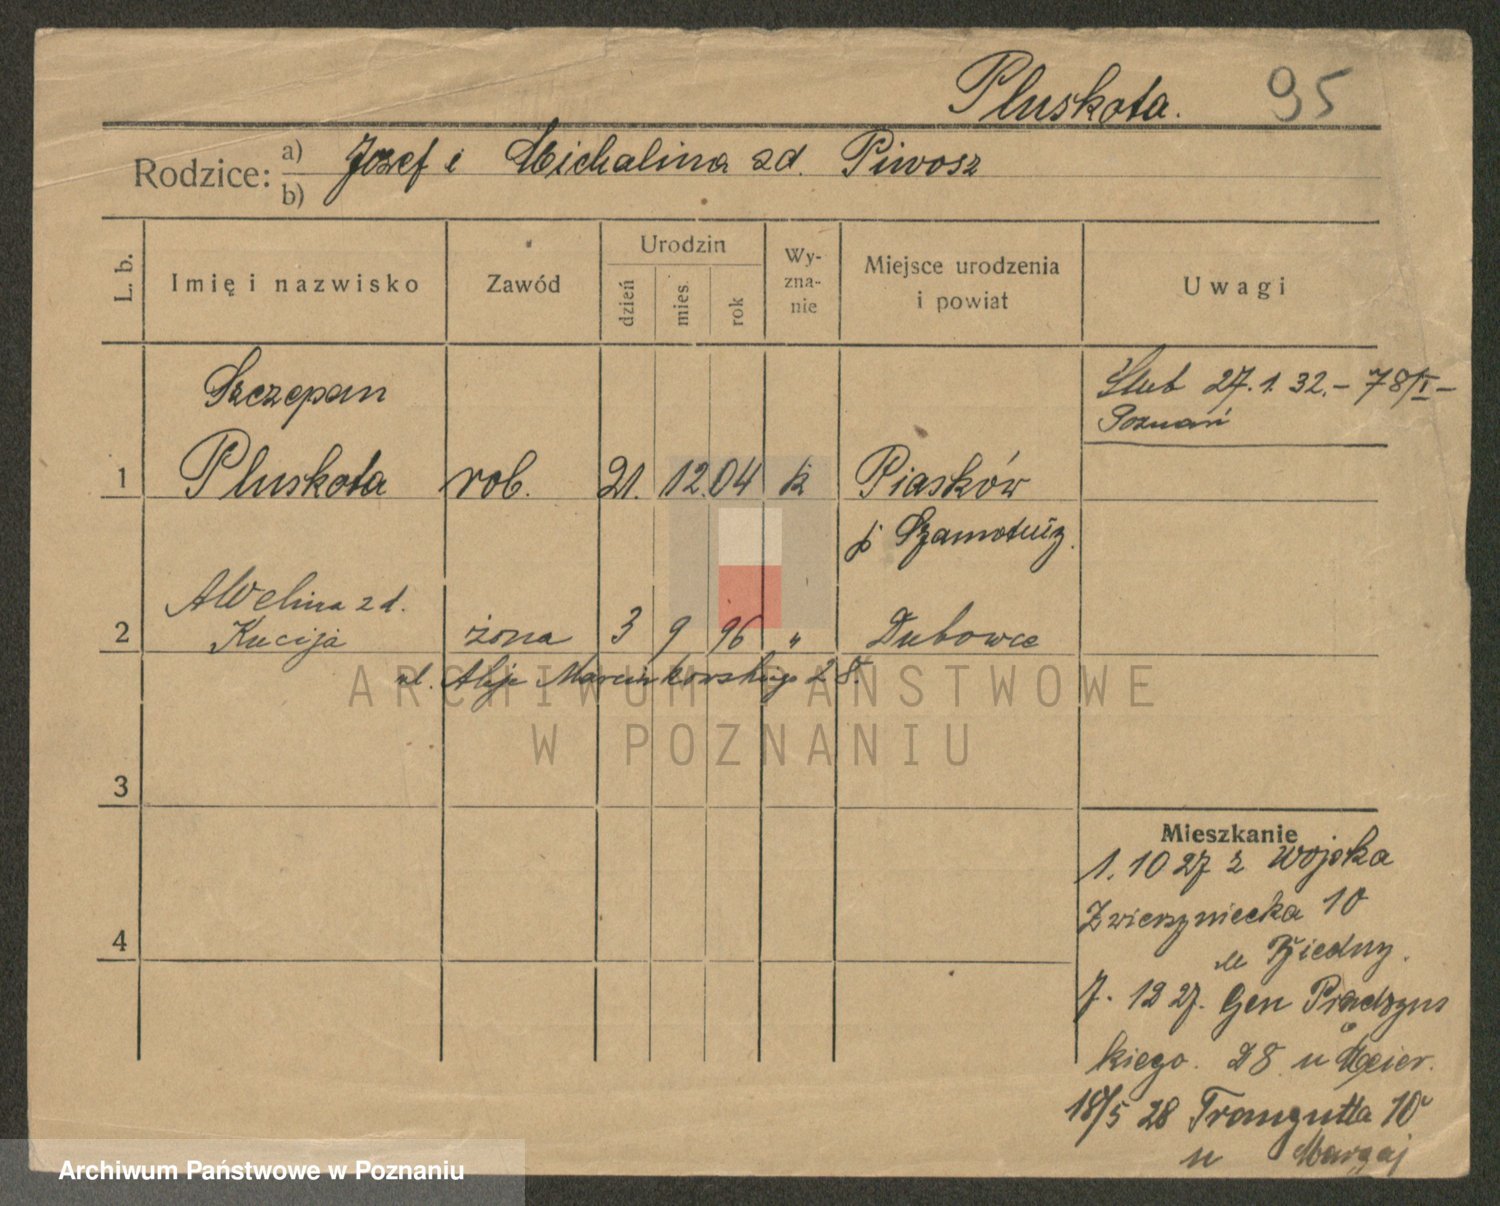 Pluskota. 95
Rodzice: a) Jozef i Michalina zd. Piwosz
b)
L. b. Imię i nazwisko Zawód Urodzin dzień mies. rok Wy-zna-nie Miejsce urodzenia i powiat Uwagi
Szczepan
1 Pluskota rob. 21. 12. 04 k Piasków
p Szamotuły.
Ślub 27. 1. 32. - 78/I -
Poznań
Awelina zd.
2 Kucija żona 3 9 96 " Dubowce
ul. Aleje Marcinkowskiego 28.
3
4
Mieszkanie
1. 10 27 z Wojska
Zwierzyniecka 10
u
7. 12 27. Gen Prądzyns
kiego. 28 u Meier.
18/5 28 Traugutta 10
u
ARCHIWUM PAŃSTWOWE
W POZNANIU
Archiwum Państwowe w Poznaniu